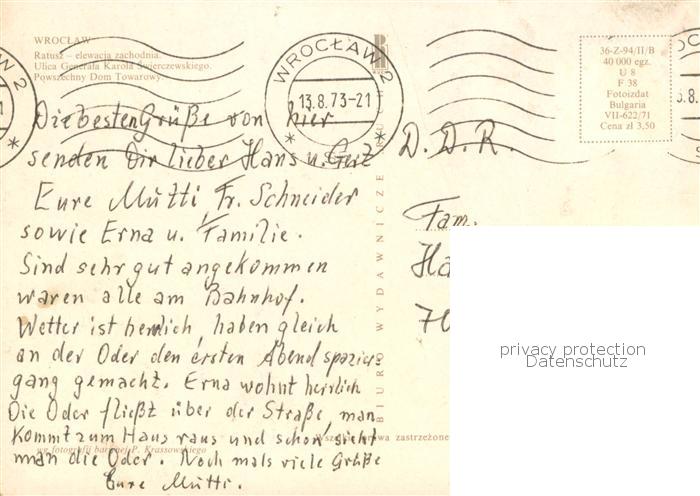 WROCŁAW
Ratusz – elewacja zachodnia.
Ulica Generała Karola Świerczewskiego.
Powszechny Dom Towarowy.
WROCŁAW 2
13.8.73-21
36-Z-94/II/B
40 000 egz.
U 8
F 38
Fotoizdat
Bulgaria
VII-622/71
Cena zł 3,50
Die besten Grüße von hier
senden Dir lieber Hans u. Gert
Eure Mutti, Fr. Schneider
sowie Erna u. Familie.
Sind sehr gut angekommen
waren alle am Bahnhof.
Wetter ist herrlich, haben gleich
an der Oder den ersten Abend spazier-
gang gemacht. Erna wohnt herrlich
Die Oder fließt über der Straße, man
kommt zum Haus raus und schon sieht
man die Oder. Noch mals viele Grüße
Eure Mutti.
wg fotografii barwnej P. Krassowskiego
BIURO WYDAWNICZE
zastrzeżone
D. D. R.
Fam.
Ha
70
privacy protection
Datenschutz